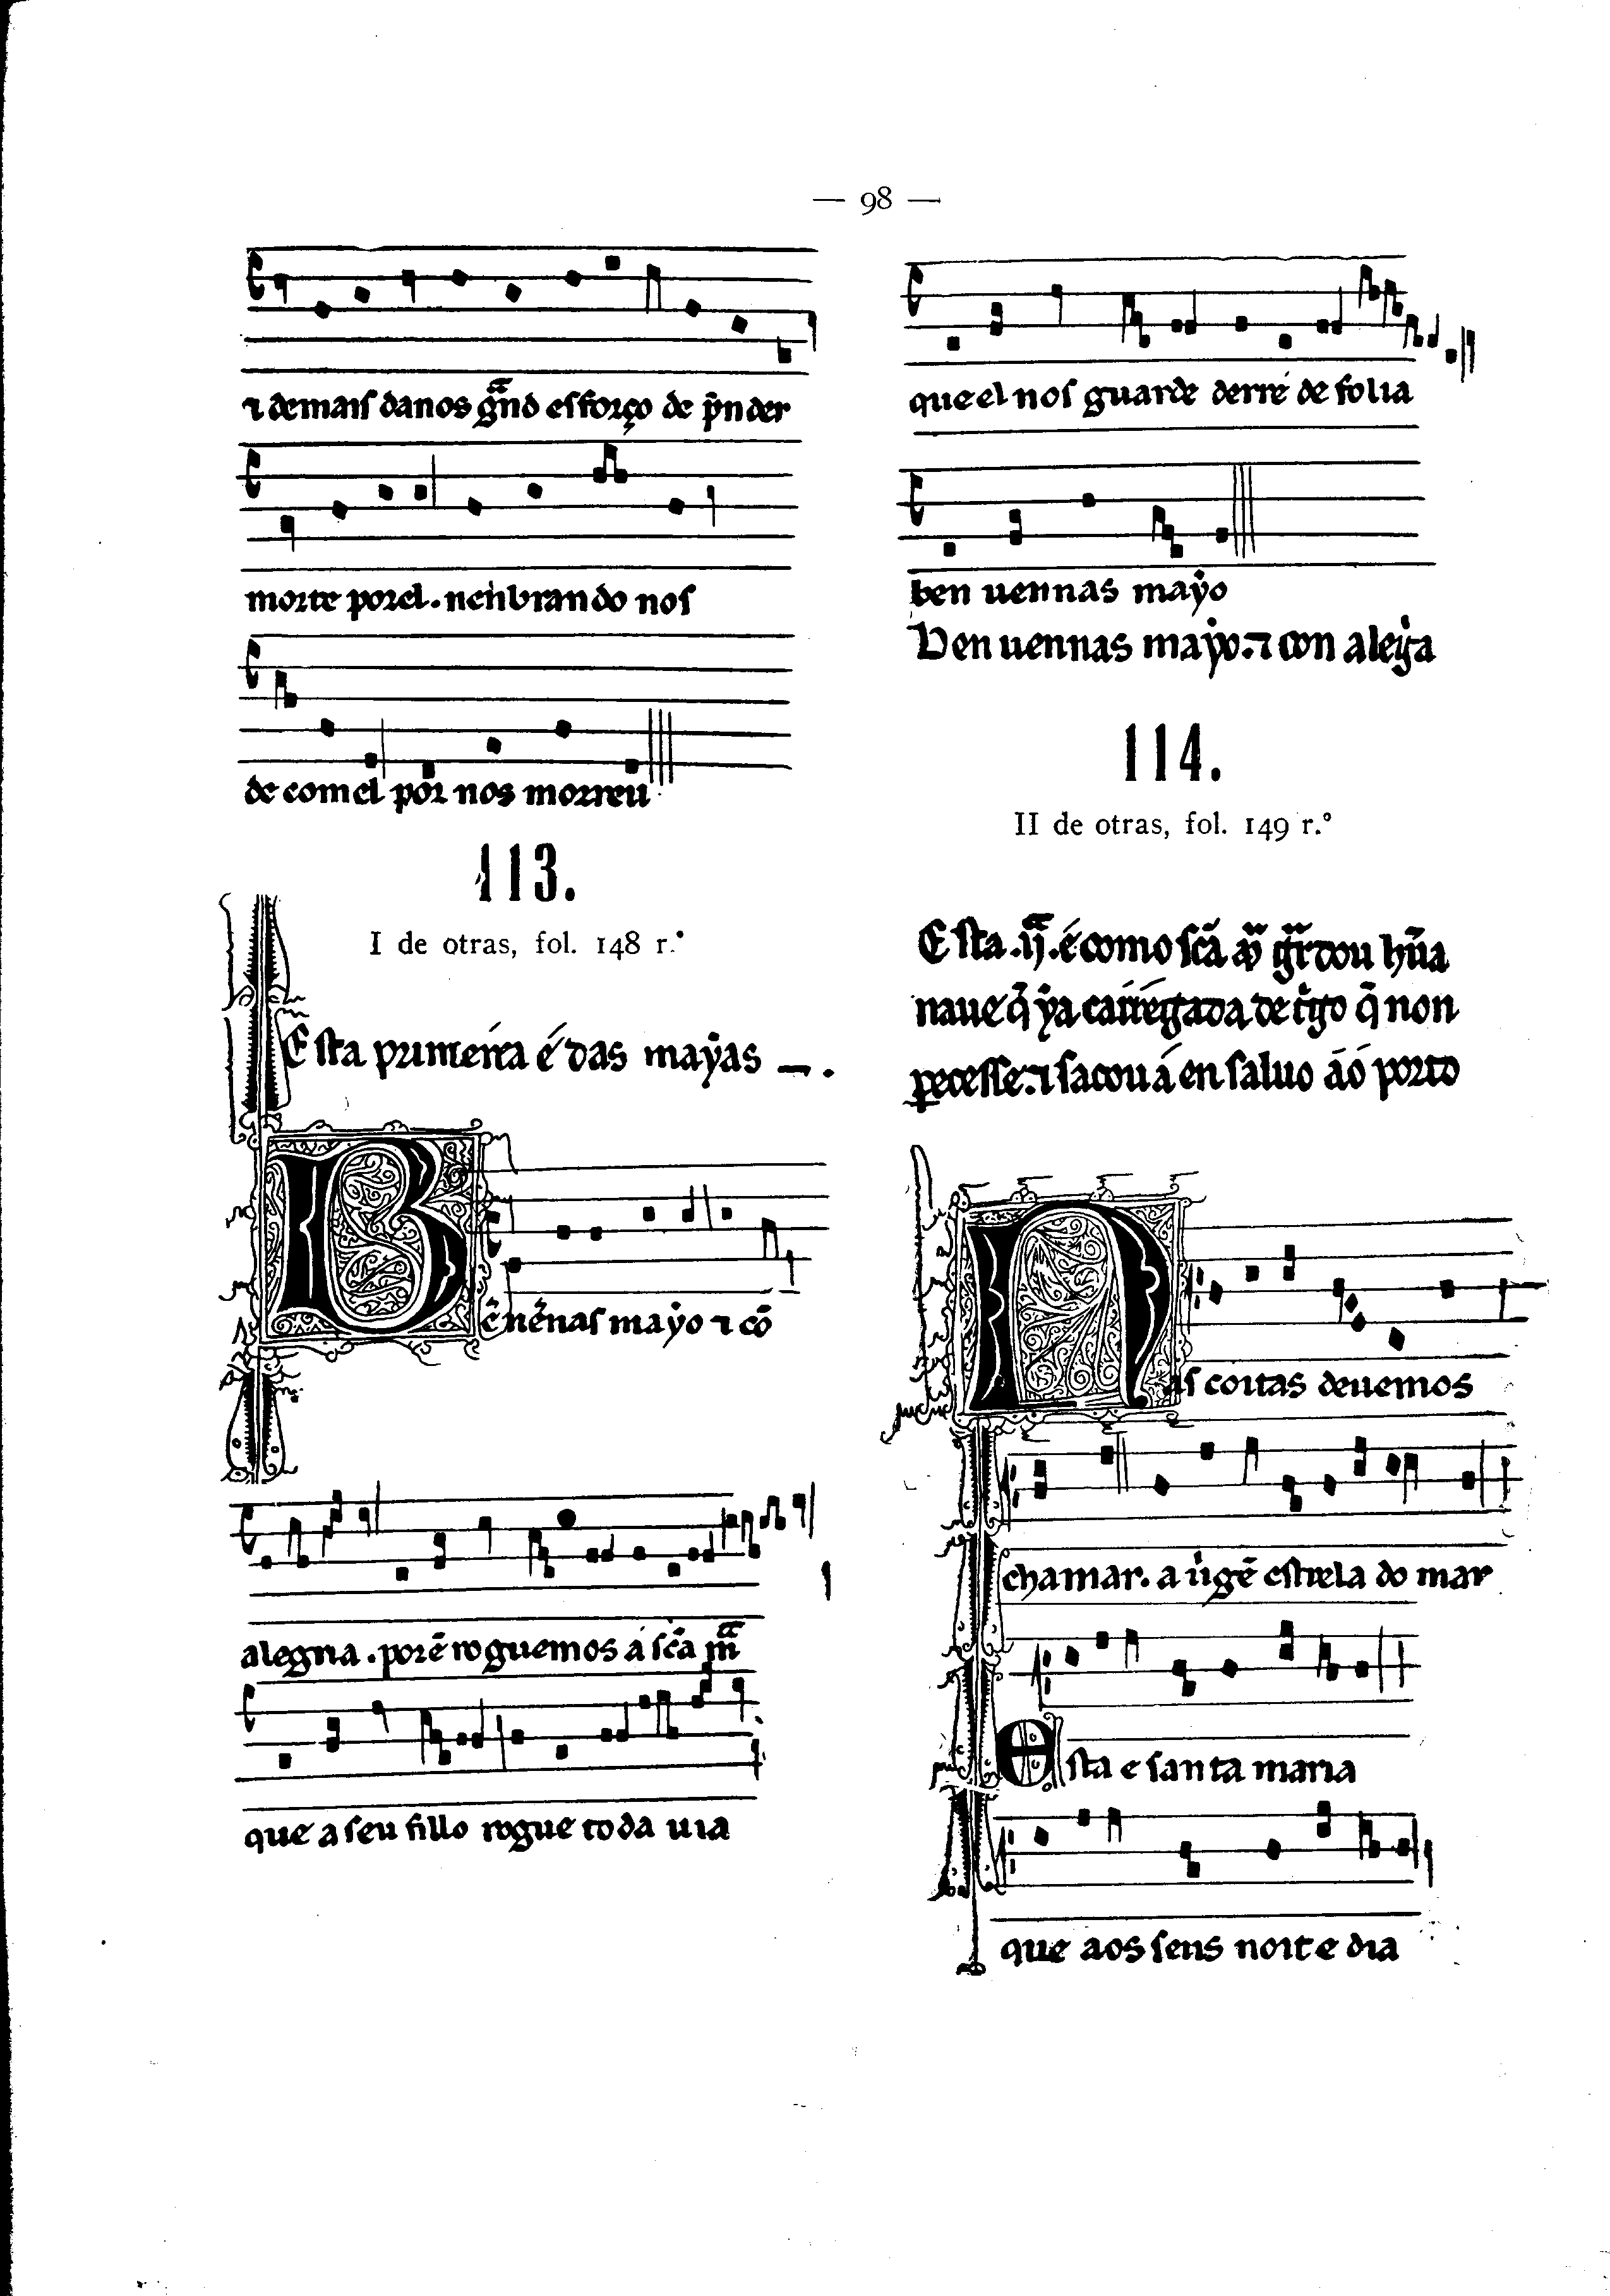 — 98 —
⁊ demais danos gͣnd esforço de p̃nder
morte porel. nenbrando nos
de comel por nos morreu
113.
I de otras, fol. 148 r.º
Esta primeira é das mayas —.
Bẽ uẽnas mayo ⁊ cõ
alegria. porẽ roguemos a sc̃a mͣ
que a seu fillo rogue toda uia
que el nos guarde derre de folia
ben uennas mayo
Ben uennas mayo. ⁊ con alegⁱa
114.
II de otras, fol. 149 r.º
Esta .ij.ª é como sc̃a gͣrdou hũa
naue q̃ ya carregada de tⁱgo q̃ non
perecesse. ⁊ sacou á en saluo áó porto
Nas coitas deuemos
chamar. a uⁱgẽ estrela do mar
Esta e santa maria
que aos seus noit e dia